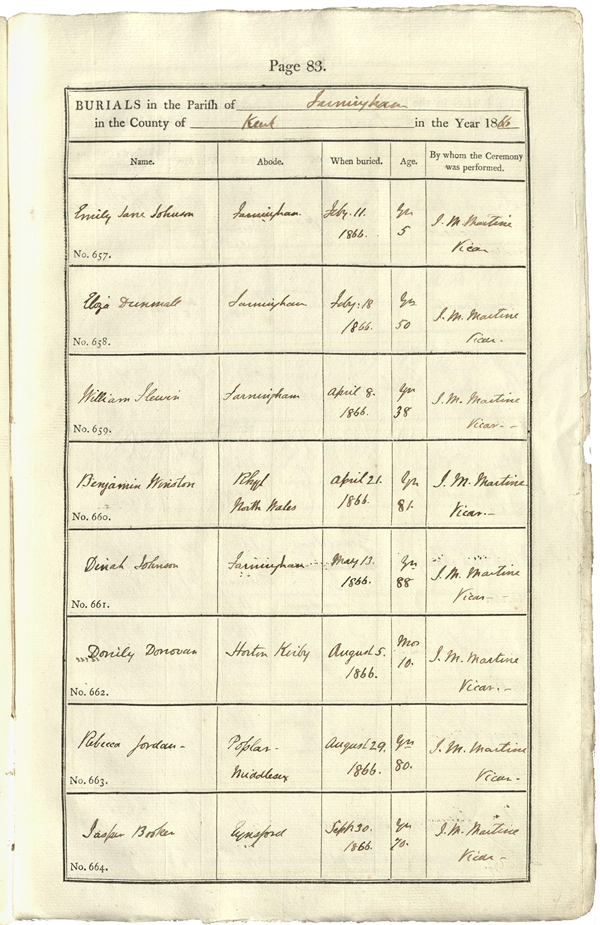 Page 83.
BURIALS in the Parish of Farningham
in the County of Kent in the Year 1866
Name. Abode. When buried. Age. By whom the Ceremony was performed.
Emily Jane Johnson Farningham. Feby. 11. Yrs J. M. Martine
1866. 5 Vicar
No. 657.
Eliza Dunmall Farningham Feby. 18 Yrs J. M. Martine
1866. 50 Vicar.
No. 658.
William Farningham April 8. Yrs J. M. Martine
1866. 38 Vicar.-
No. 659.
Benjamin Winston Rhyl April 21. Yrs J. M. Martine
North Wales 1866. 81. Vicar.-
No. 660.
Dinah Johnson Farningham May 13. Yrs J. M. Martine
1866. 88 Vicar-
No. 661.
Donovan Horton Kirby August 5. Mos J. M. Martine
1866. 10. Vicar.-
No. 662.
Rebecca Jordan- Poplar- August 29. Yrs J. M. Martine
Middlesex 1866. 80. Vicar-
No. 663.
Jasper Booker Eynsford Sept. 30. Yrs J. M. Martine
1866. 70. Vicar-
No. 664.